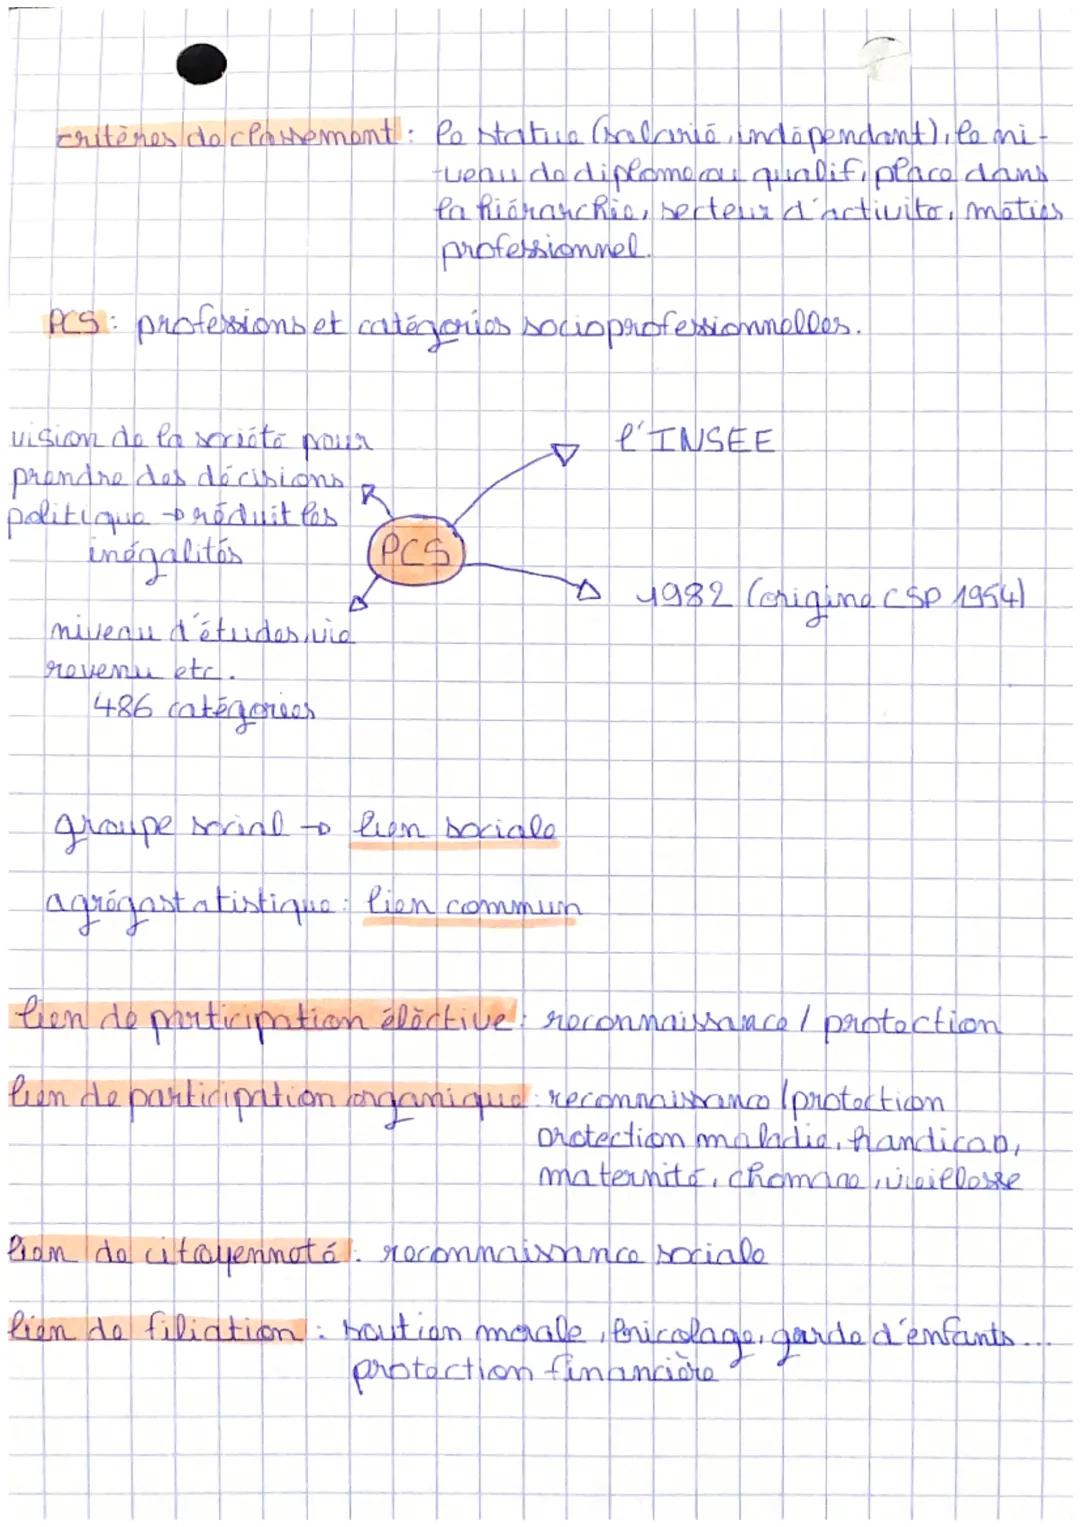 critères de classement : le statue (salarié, indépendant), le ni-
veau de diplome ou qualif, place dans
la hiérarchie, secteur d'activité, méties
professionnel.
PCS : professions et catégories socioprofessionnelles.
vision de la société pour
prendre des décisions
politique → réduit les
inégalités
PCS
l'INSEE
1982 (origine CSP 1954)
niveau d'études, vie
revenu etc.
486 catégories
groupe social → lien sociale
agrégast atistique : lien commun
lien de participation éléctive : reconnaissance / protection
lien de participation organique : reconnaissance / protection
protection maladie, handicap,
maternité, chomage, vieillesse
lien de citoyenneté : reconnaissance sociale
lien de filiation : soution morale, bricolage, garde d'enfants...
protection financière